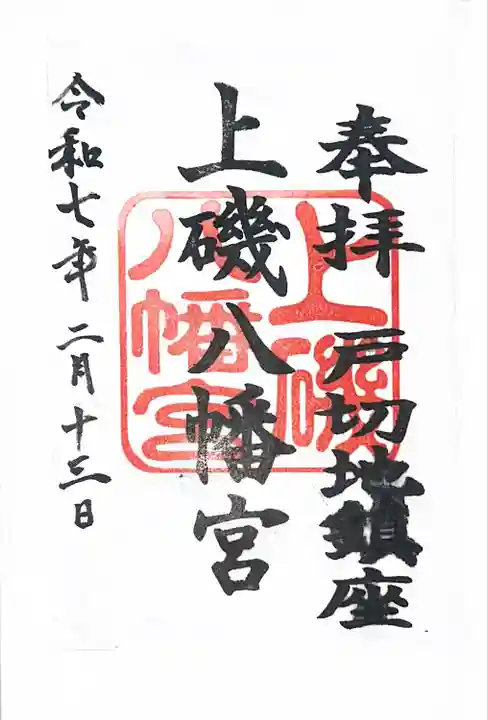 奉拝 戸切地鎮座
上磯八幡宮
令和七年二月十三日
上磯
八幡宮